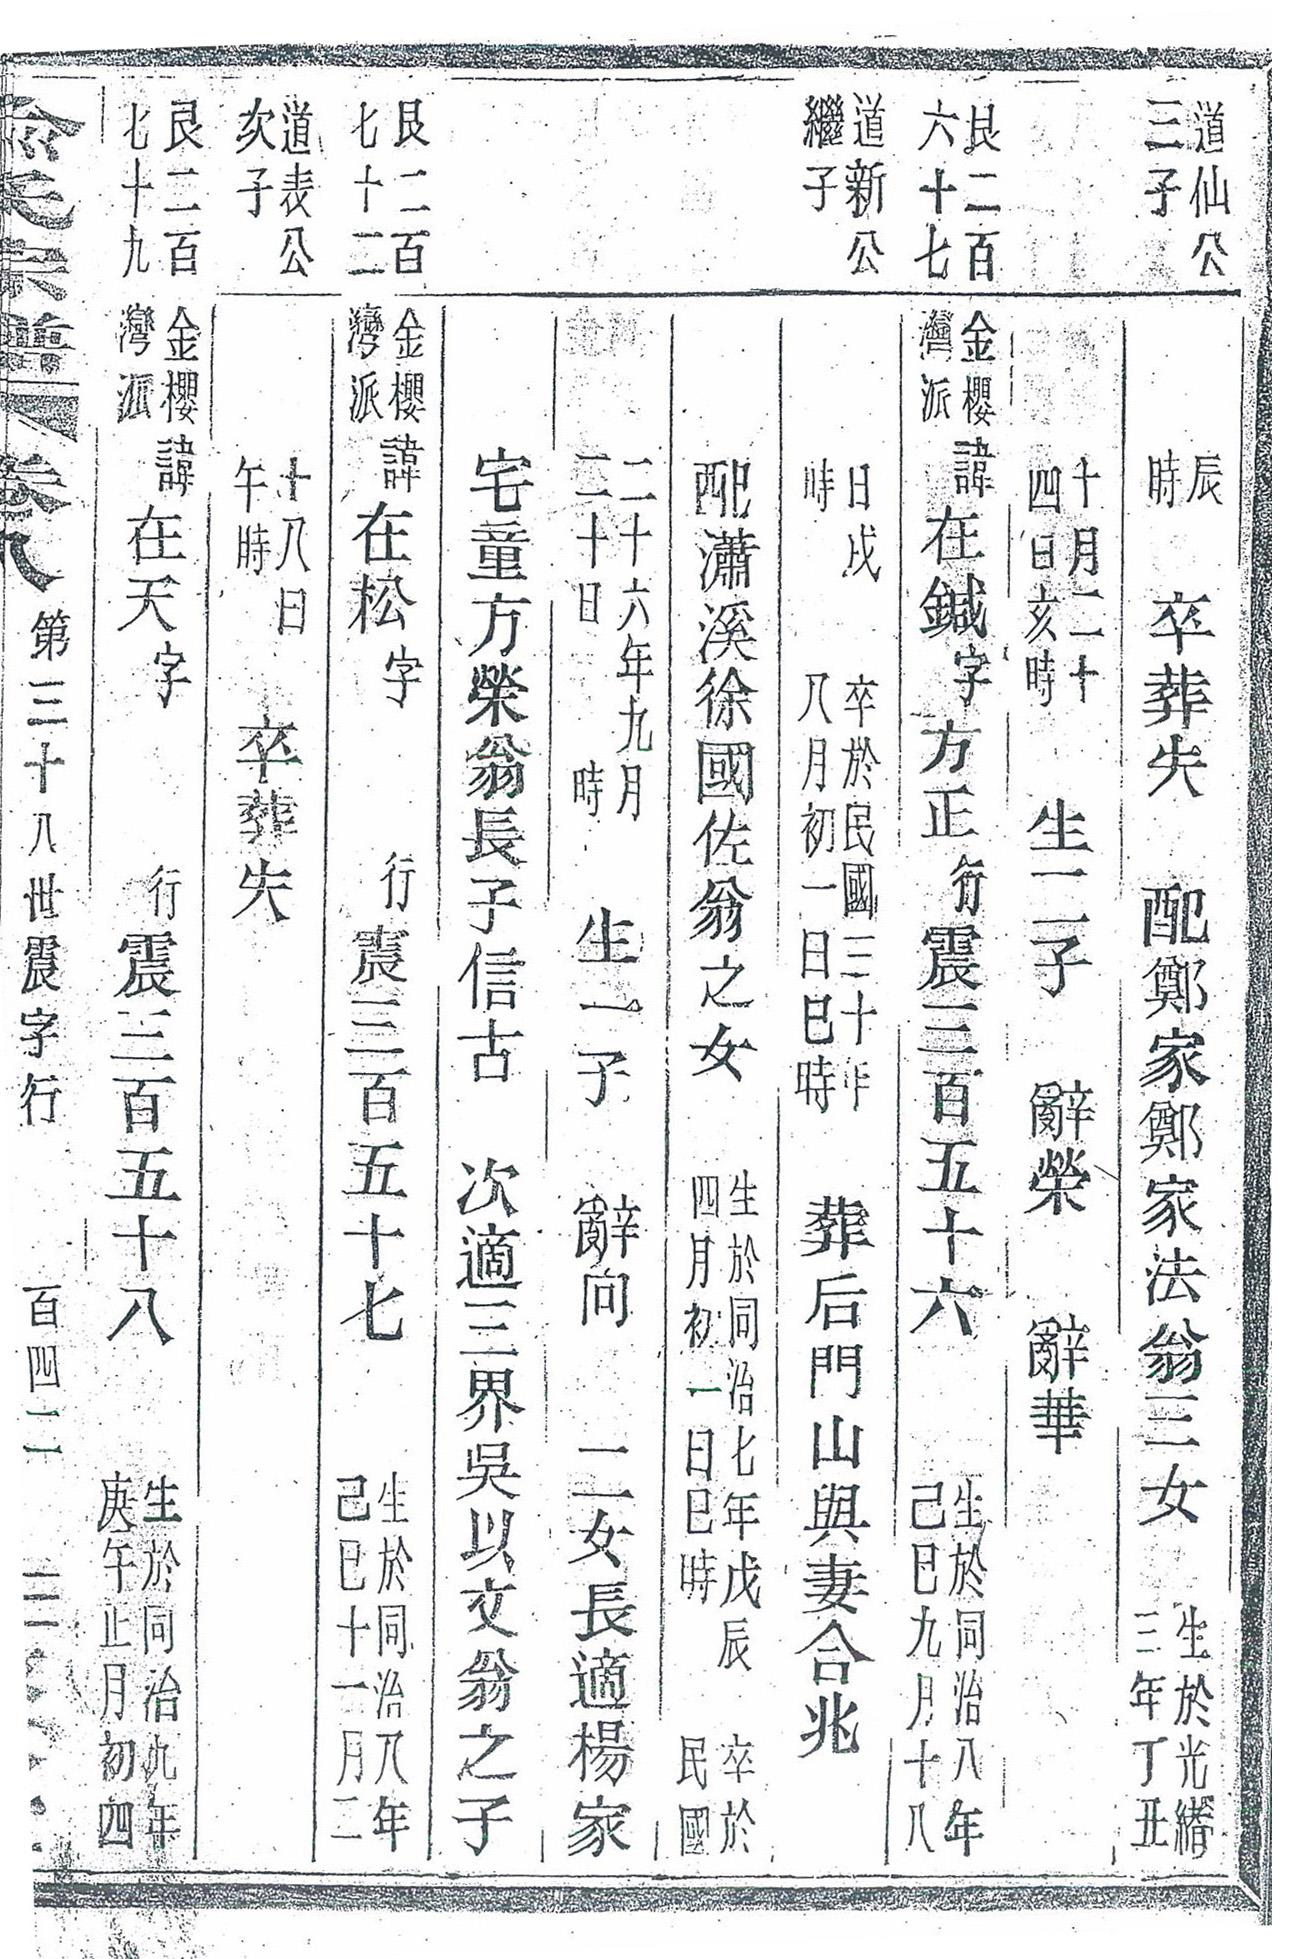 道仙公
三子
辰
時
卒葬失 配鄭家鄭家法翁三女
生於光緖
三年丁丑
十月二十
四日亥時
生二子 辭榮 辭華
艮二百
六十七
金櫻
灣派
諱在鍼字方正行震三百五十六
生於同治八年
己巳九月十八
道新公
繼子
日戌
時
卒於民國三十年
八月初一日巳時
葬后門山與妻合兆
配瀟溪徐國佐翁之女
生於同治七年戊辰
四月初一日巳時
卒於
民國
二十六年九月
二十日 時
生一子 辭向 二女長適楊家
宅童方榮翁長子信古 次適三界吳以文翁之子
艮二百
七十二
金櫻
灣派
諱在松字 行震三百五十七
生於同治八年
己巳十一月二
道表公
次子
十八日
午時
卒葬失
艮二百
七十九
金櫻
灣派
諱在天字 行震三百五十八
生於同治九年
庚午正月初四
宗譜 卷八 第三十八世震字行 百四二